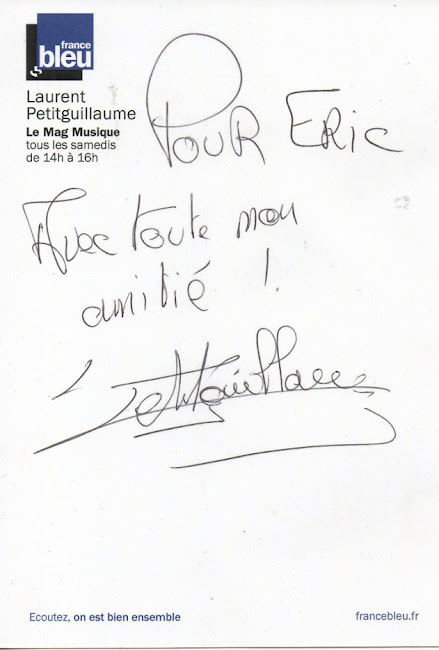 france
bleu
Laurent
Petitguillaume
Le Mag Musique
tous les samedis
de 14h à 16h
POUR ERIC
Avec toute mon
amitié !
Petitguillaume
Ecoutez, on est bien ensemble
francebleu.fr